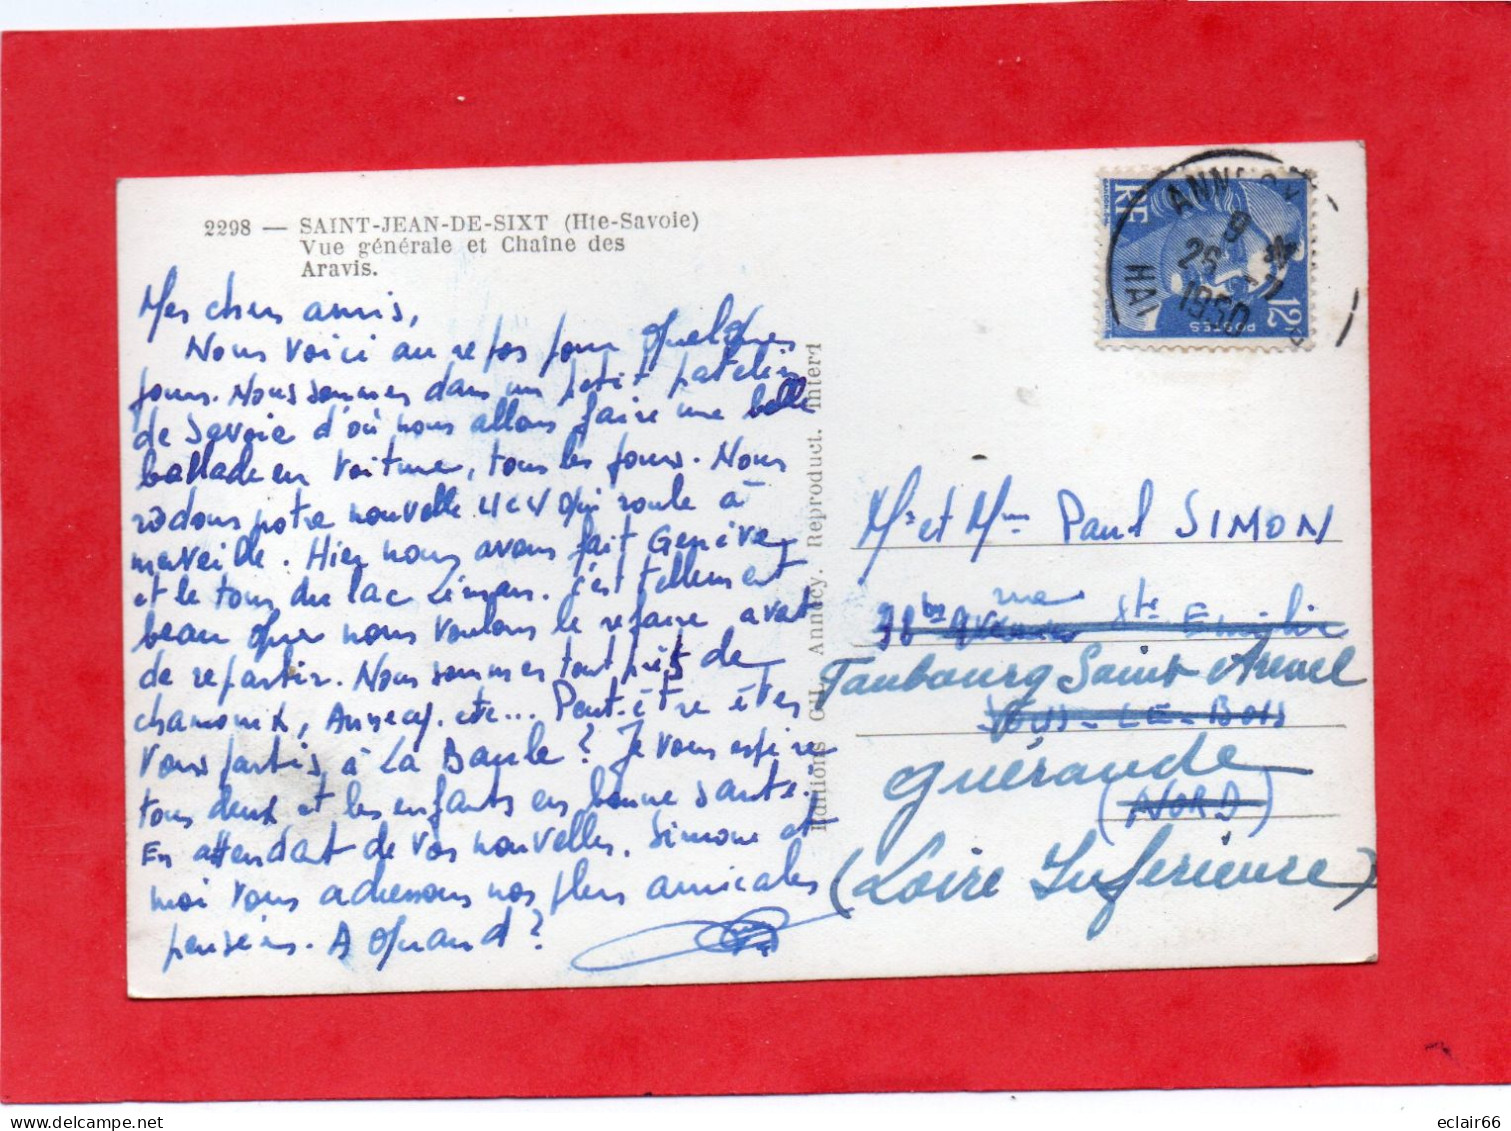 2298 — SAINT-JEAN-DE-SIXT (Hte-Savoie)
Vue générale et Chaîne des
Aravis.
Mes chers amis,
Nous voici au repos pour quelques
jours. Nous sommes dans un petit patelin
de Savoie d'où nous allons faire une belle
ballade en voiture, tous les jours. Nous
rodons notre nouvelle 4 cv qui roule à
merveille. Hier nous avons fait Genève
et le tour du lac Léman. C'est tellement
beau que nous voulons le refaire avant
de repartir. Nous sommes tout près de
chamonix, Annecy. etc... Peut-être êtes
vous partis à La Baule ? Je vous espère
tous deux et les enfants en bonne santé.
En attendant de vos nouvelles. Simone et
moi vous adressons nos plus amicales
pensées. A quand ?
Editions Annecy. Reproduct. interd
ANNECY
9
26 - 7
1950
HAU
RF
POSTES
12F
Mr et Mme Paul SIMON
98 bis rue Ste
Faubourg Saint Armel
-LE-BOIS
Guérande
(NORD)
(Loire Inférieure)
delcampe.net
eclair66